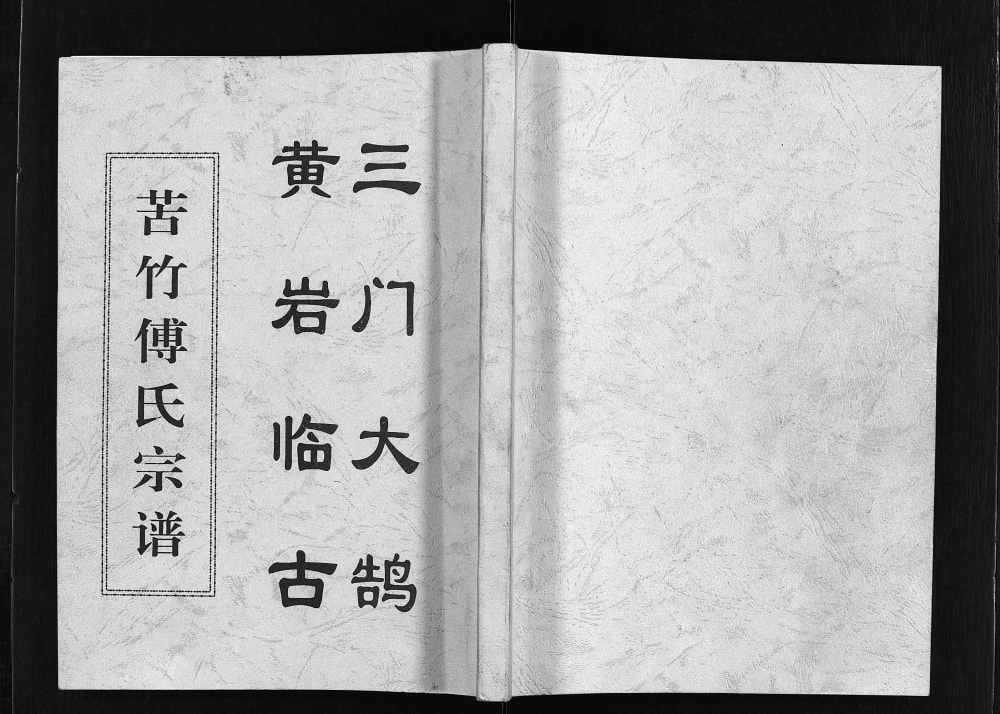 三门大鹄
黄岩临古
苦竹傅氏宗谱